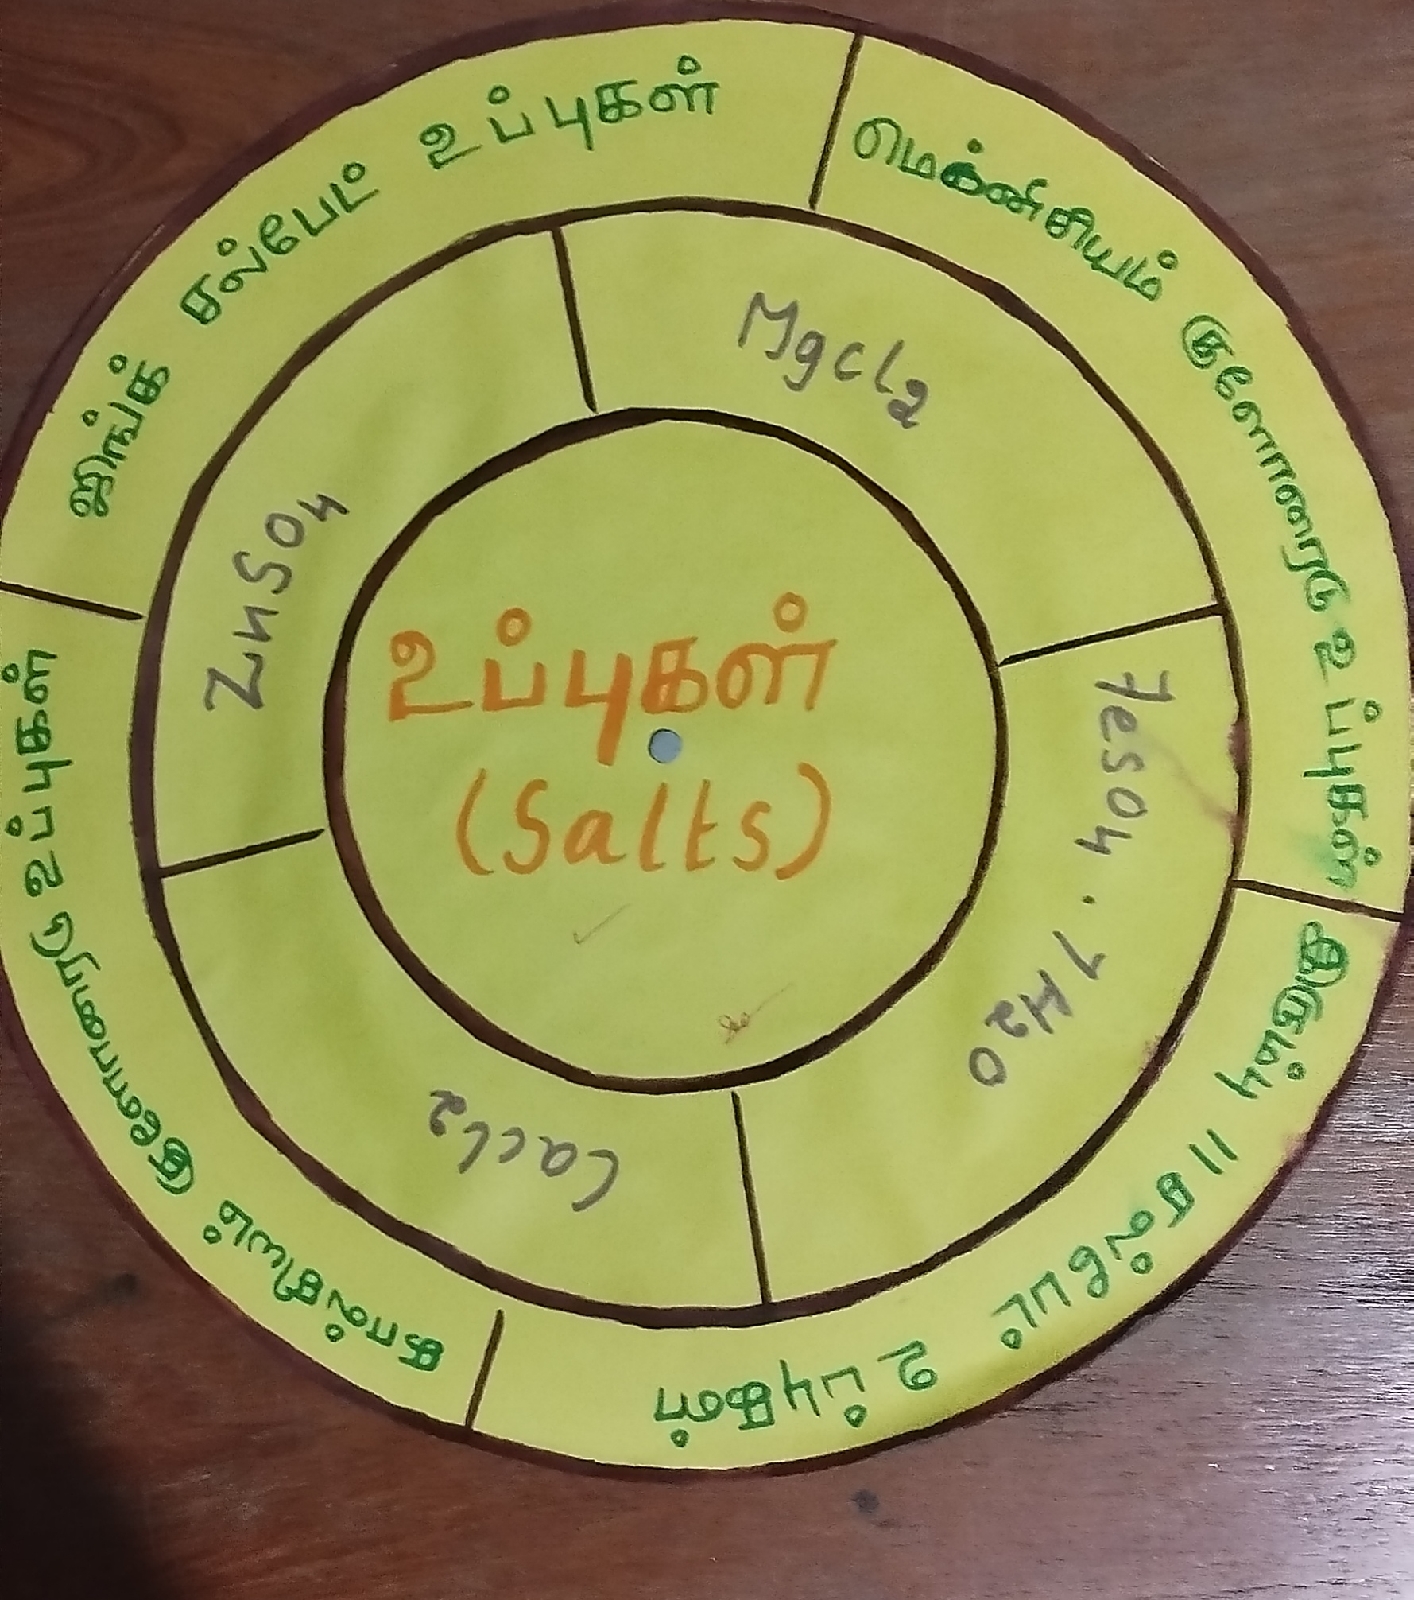 உப்புகள்
(Salts)
ஜிங்க் சல்பேட் உப்புகள்
மெக்னீசியம் குளோரைடு உப்புகள்
இரும்பு II சல்பேட் உப்புகள்
கால்சியம் குளோரைடு உப்புகள்
ZnSO4
Mgcl2
FeSO4 . 7H2O
Cacl2